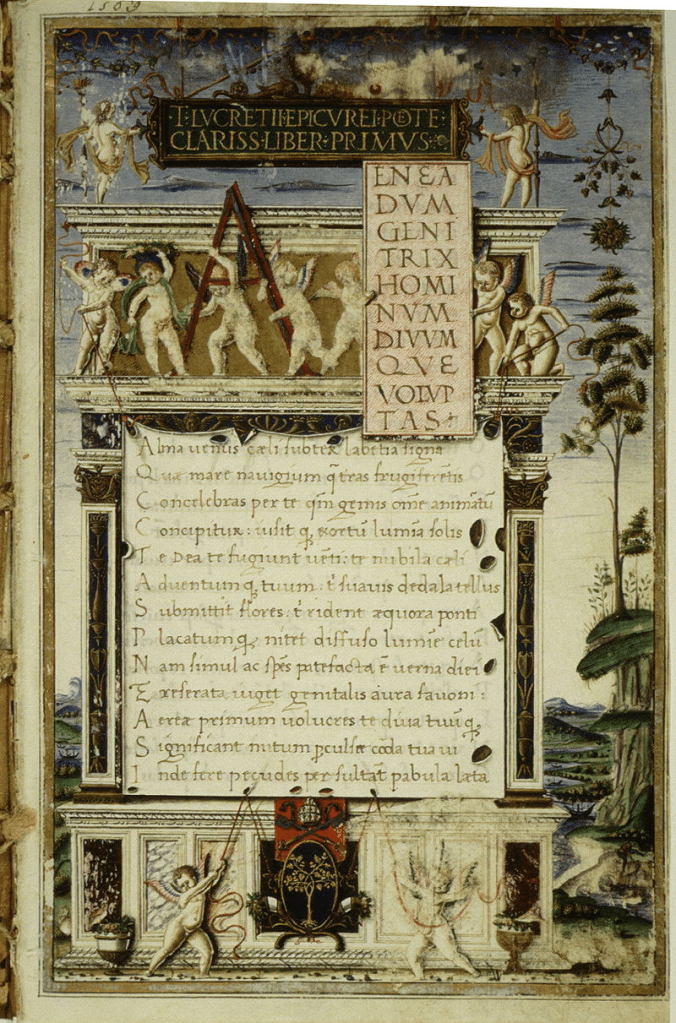 1569
T·LUCRETII·EPICUREI·POETE·
CLARISS·LIBER·PRIMUS·
A
ENEA
DVM
GENI
TRIX
HOMI
NVM
DIVVM
QVE
VOLVP
TAS·
Alma venus cæli subter labētia signa
Quæ mare navigium q̄ tras frugiferētis
Concelebras per te qm̄ genus om̄e animātū
Concipitur: iusit q, exortū lumīa solis
Te Dea te fugiunt vēti: te nubila cæli
Adventumq, tuum: t' suavis dedala tellus
Submittit flores: t' rident æquora ponti
Placatumq, nitet diffuso lumīe celū
Nam simul ac spēs patefacta ē verna diei
Exserata viget genitalis aura favoni:
Aereæ primum volucres te divia tuūq,
Significant initum pculsæ coda tua ui
Inde fere pecudes per sultāt pabula læta